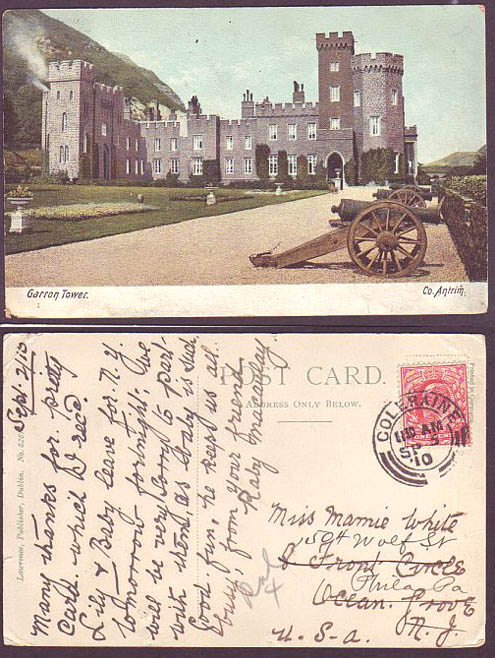 Garron Tower.
Co. Antrim.
POST CARD.
ADDRESS ONLY BELOW.
Printed in Germany
Lawrence, Publisher, Dublin. No. 826
Sept. 2/10
Many thanks for pretty
Card. which I recd.
Lily & Baby leave for N. Y.
tomorrow fortnight. We
will be very sorry to part
with them, as Baby is such
Good fun, he keeps us all
busy, from your friend
Kaby
COLERAINE
AM
SP
10
Miss Mamie White
1594 Wolf St
Front Circle
Phila Pa
Ocean Grove
N. J.
U. S. A.